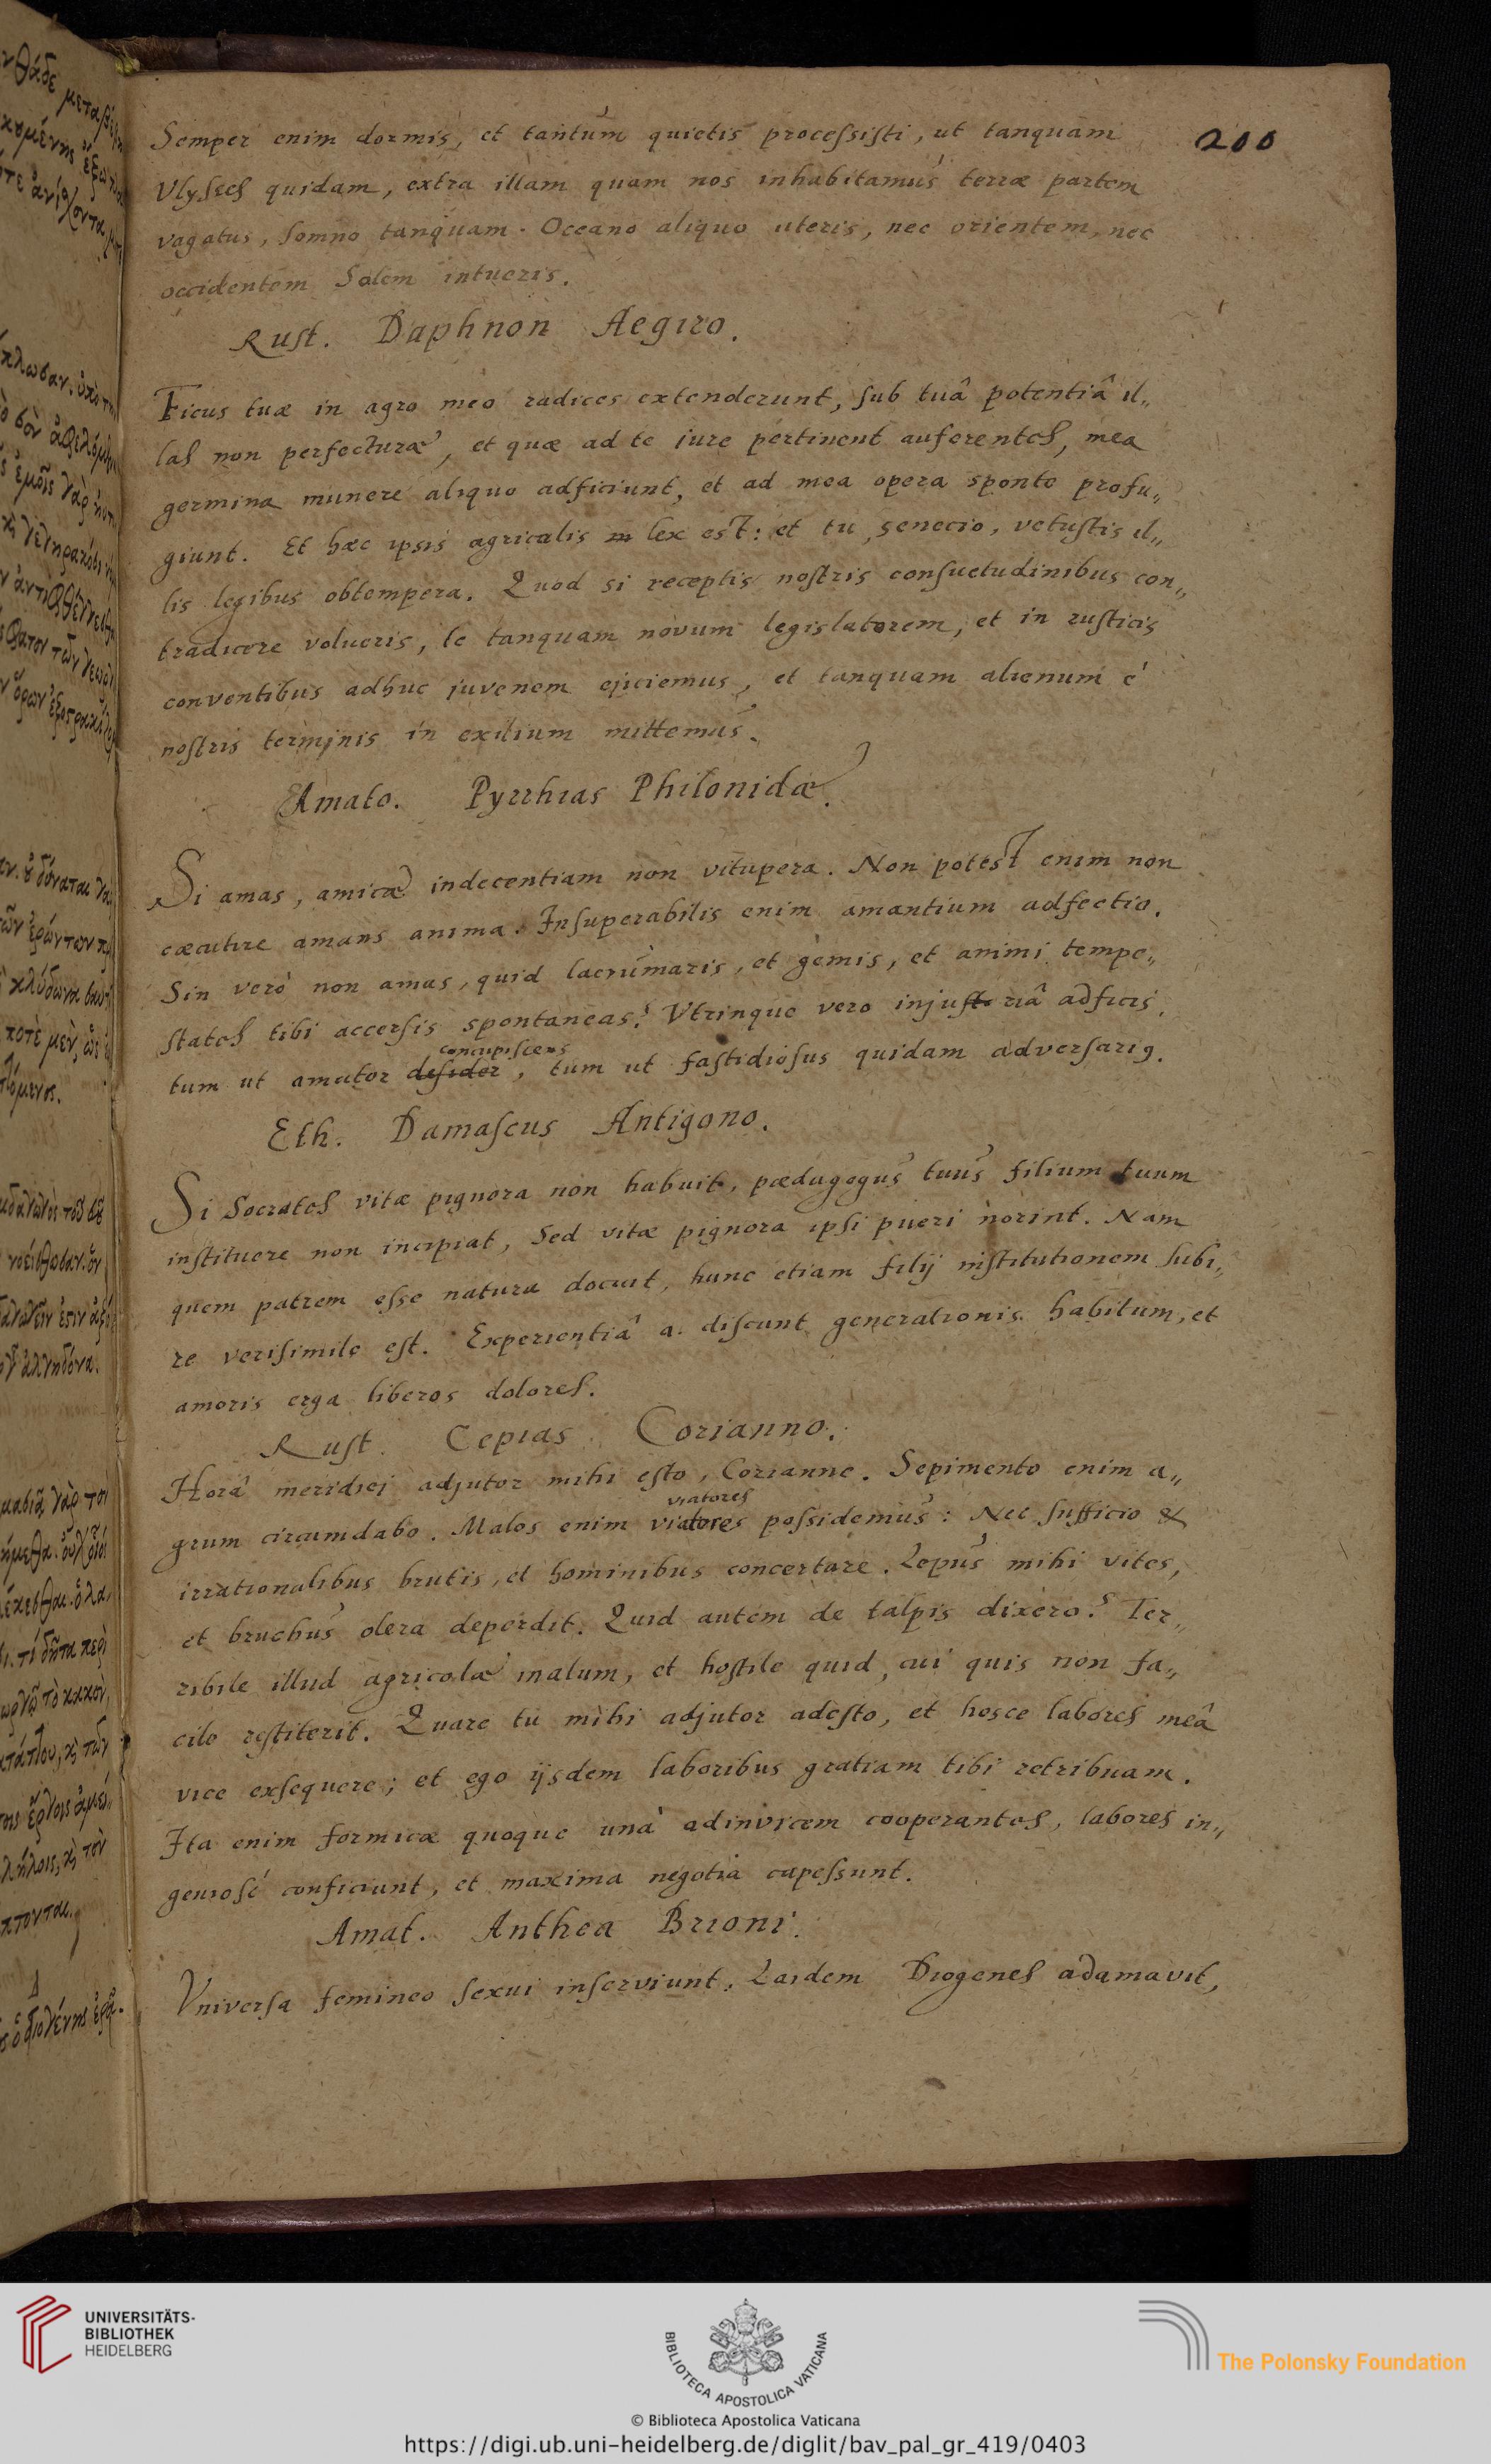 200
Semper enim dormis, et tantum quietis processisti, ut tanquam
Vlysses quidam, extra illam quam nos inhabitamus terræ partem
vagatus, somno tanquam Oceano aliquo uteris, nec orientem, nec
occidentem Solem intueris.
Rust. Daphnon Aegiro.
Ficus tuæ in agro meo radices extenderunt, sub tuâ potentiâ il„
las non perfecturæ, et quæ ad te jure pertinent auferentes, mea
germina munere aliquo adficiunt, et ad mea opera sponte profu„
giunt. Et hæc ipsis agricolis lex est: et tu, senecio, vetustis il„
lis legibus obtempera. Quod si receptis nostris consuetudinibus con„
tradicere volueris, te tanquam novum legislatorem, et in rusticis
conventibus adhuc juvenem ejiciemus, et tanquam alienum é
nostris terminis in exilium mittemus.
Amato. Pyrrhias Philonidæ.
Si amas, amicæ indecentiam non vitupera. Non potest enim non
cæcutire amans anima. Insuperabilis enim amantium adfectio.
Sin verò non amas, quid lacrumaris, et gemis, et animi tempe„
states tibi accersis spontaneas? Vtrinque vero injuriâ adficis,
concupiscens
tum ut amator desider, tum ut fastidiosus quidam adversarig.
Eth. Damascus Antigono.
Si Socrates vitæ pignora non habuit, pædagogus tuus filium tuum
instituere non incipiat, Sed vitæ pignora ipsi pueri norint. Nam
quem patrem esse natura docuit, hunc etiam filij institutionem subi„
re verisimile est. Experientiâ a. discunt generationis habitum, et
amoris erga liberos dolores.
Rust. Cepias Corianno.
Horâ meridiei adjutor mihi esto, Corianne. Sepimento enim a„
viatores
grum circumdabo. Malos enim viatores possidemus: Nec sufficio &
irrationalibus brutis, et hominibus concertare. Lepus mihi vites,
et bruchus olera deperdit. Quid autem de talpis dixero? Ter„
ribile illud agricolæ malum, et hostile quid, cui quis non fa„
cile restiterit. Quare tu mihi adjutor adesto, et hosce labores meâ
vice exsequere; et ego ijsdem laboribus gratiam tibi retribuam.
Ita enim formicæ quoque unà adinvicem cooperantes, labores in„
geniosé conficiunt, et maxima negotia capessunt.
Amat. Anthea Brioni.
Vniversa femineo sexui inserviunt. Laidem Diogenes adamavit,
UNIVERSITÄTS-
BIBLIOTHEK
HEIDELBERG
BIBLIOTECA APOSTOLICA VATICANA
The Polonsky Foundation
© Biblioteca Apostolica Vaticana
https://digi.ub.uni-heidelberg.de/diglit/bav_pal_gr_419/0403